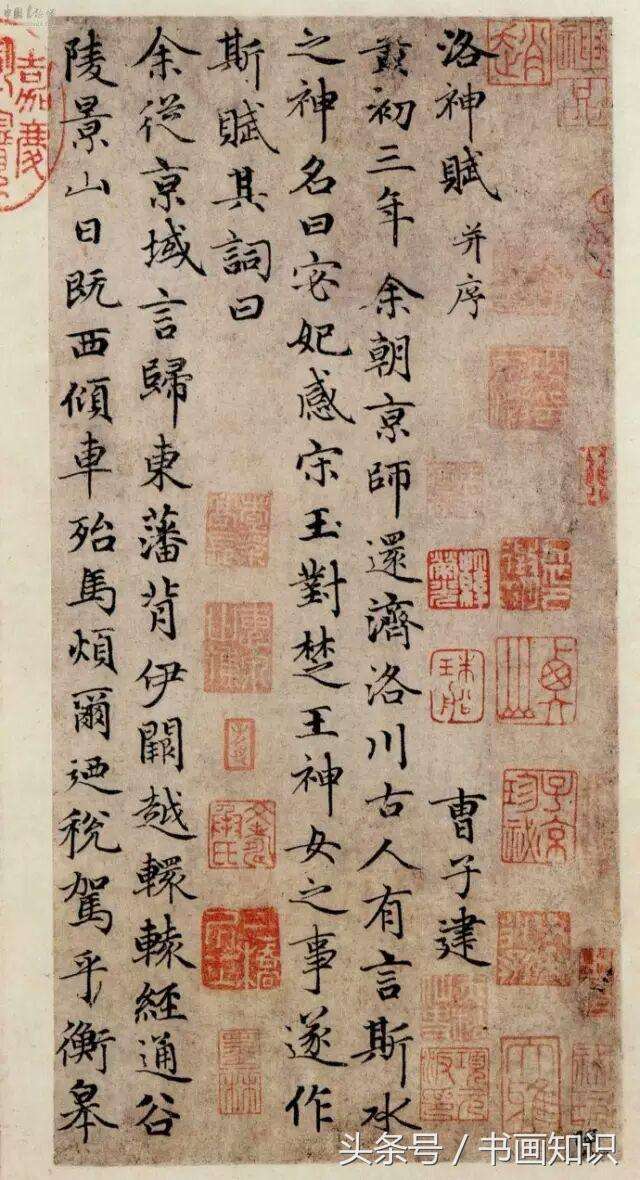 洛神賦 并序 曹子建
黃初三年余朝京師還濟洛川古人有言斯水
之神名曰宓妃感宋玉對楚王神女之事遂作
斯賦其詞曰
余從京域言歸東藩背伊闕越轘轅經通谷
陵景山日既西傾車殆馬煩爾迺稅駕乎衡皋
嘉慶
趙
珠船
子京珍祕
大雅
头条号 / 书画知识